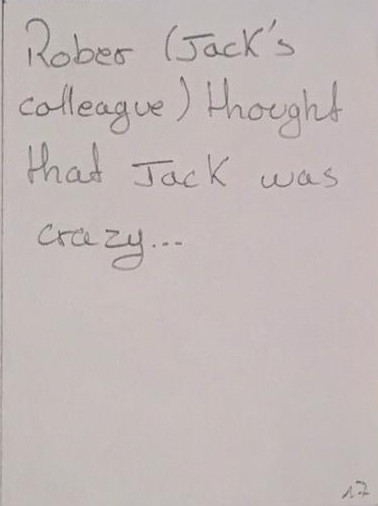 Rober (Jack's
colleague) thought
that Jack was
crazy...
17